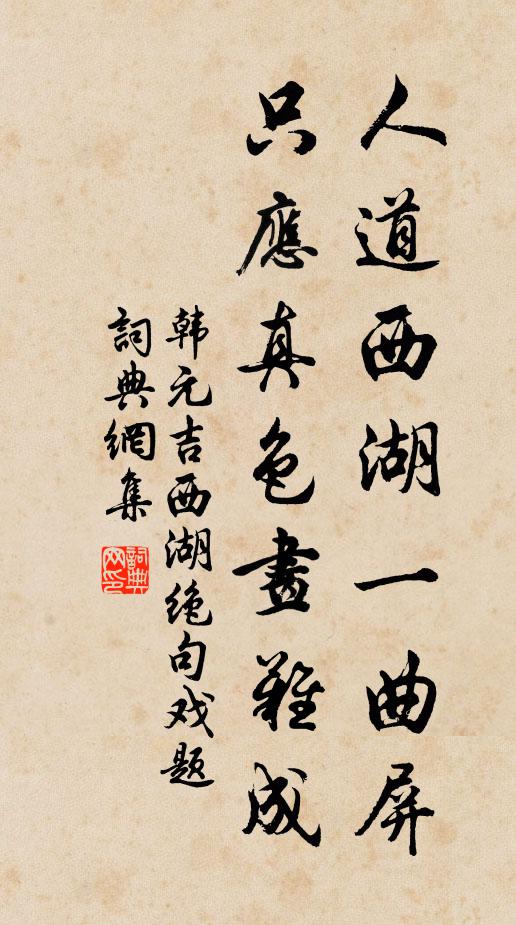 人道西湖一曲屏
只應真色畫難成
韩元吉西湖绝句戏题
詞典網集
詞典网印